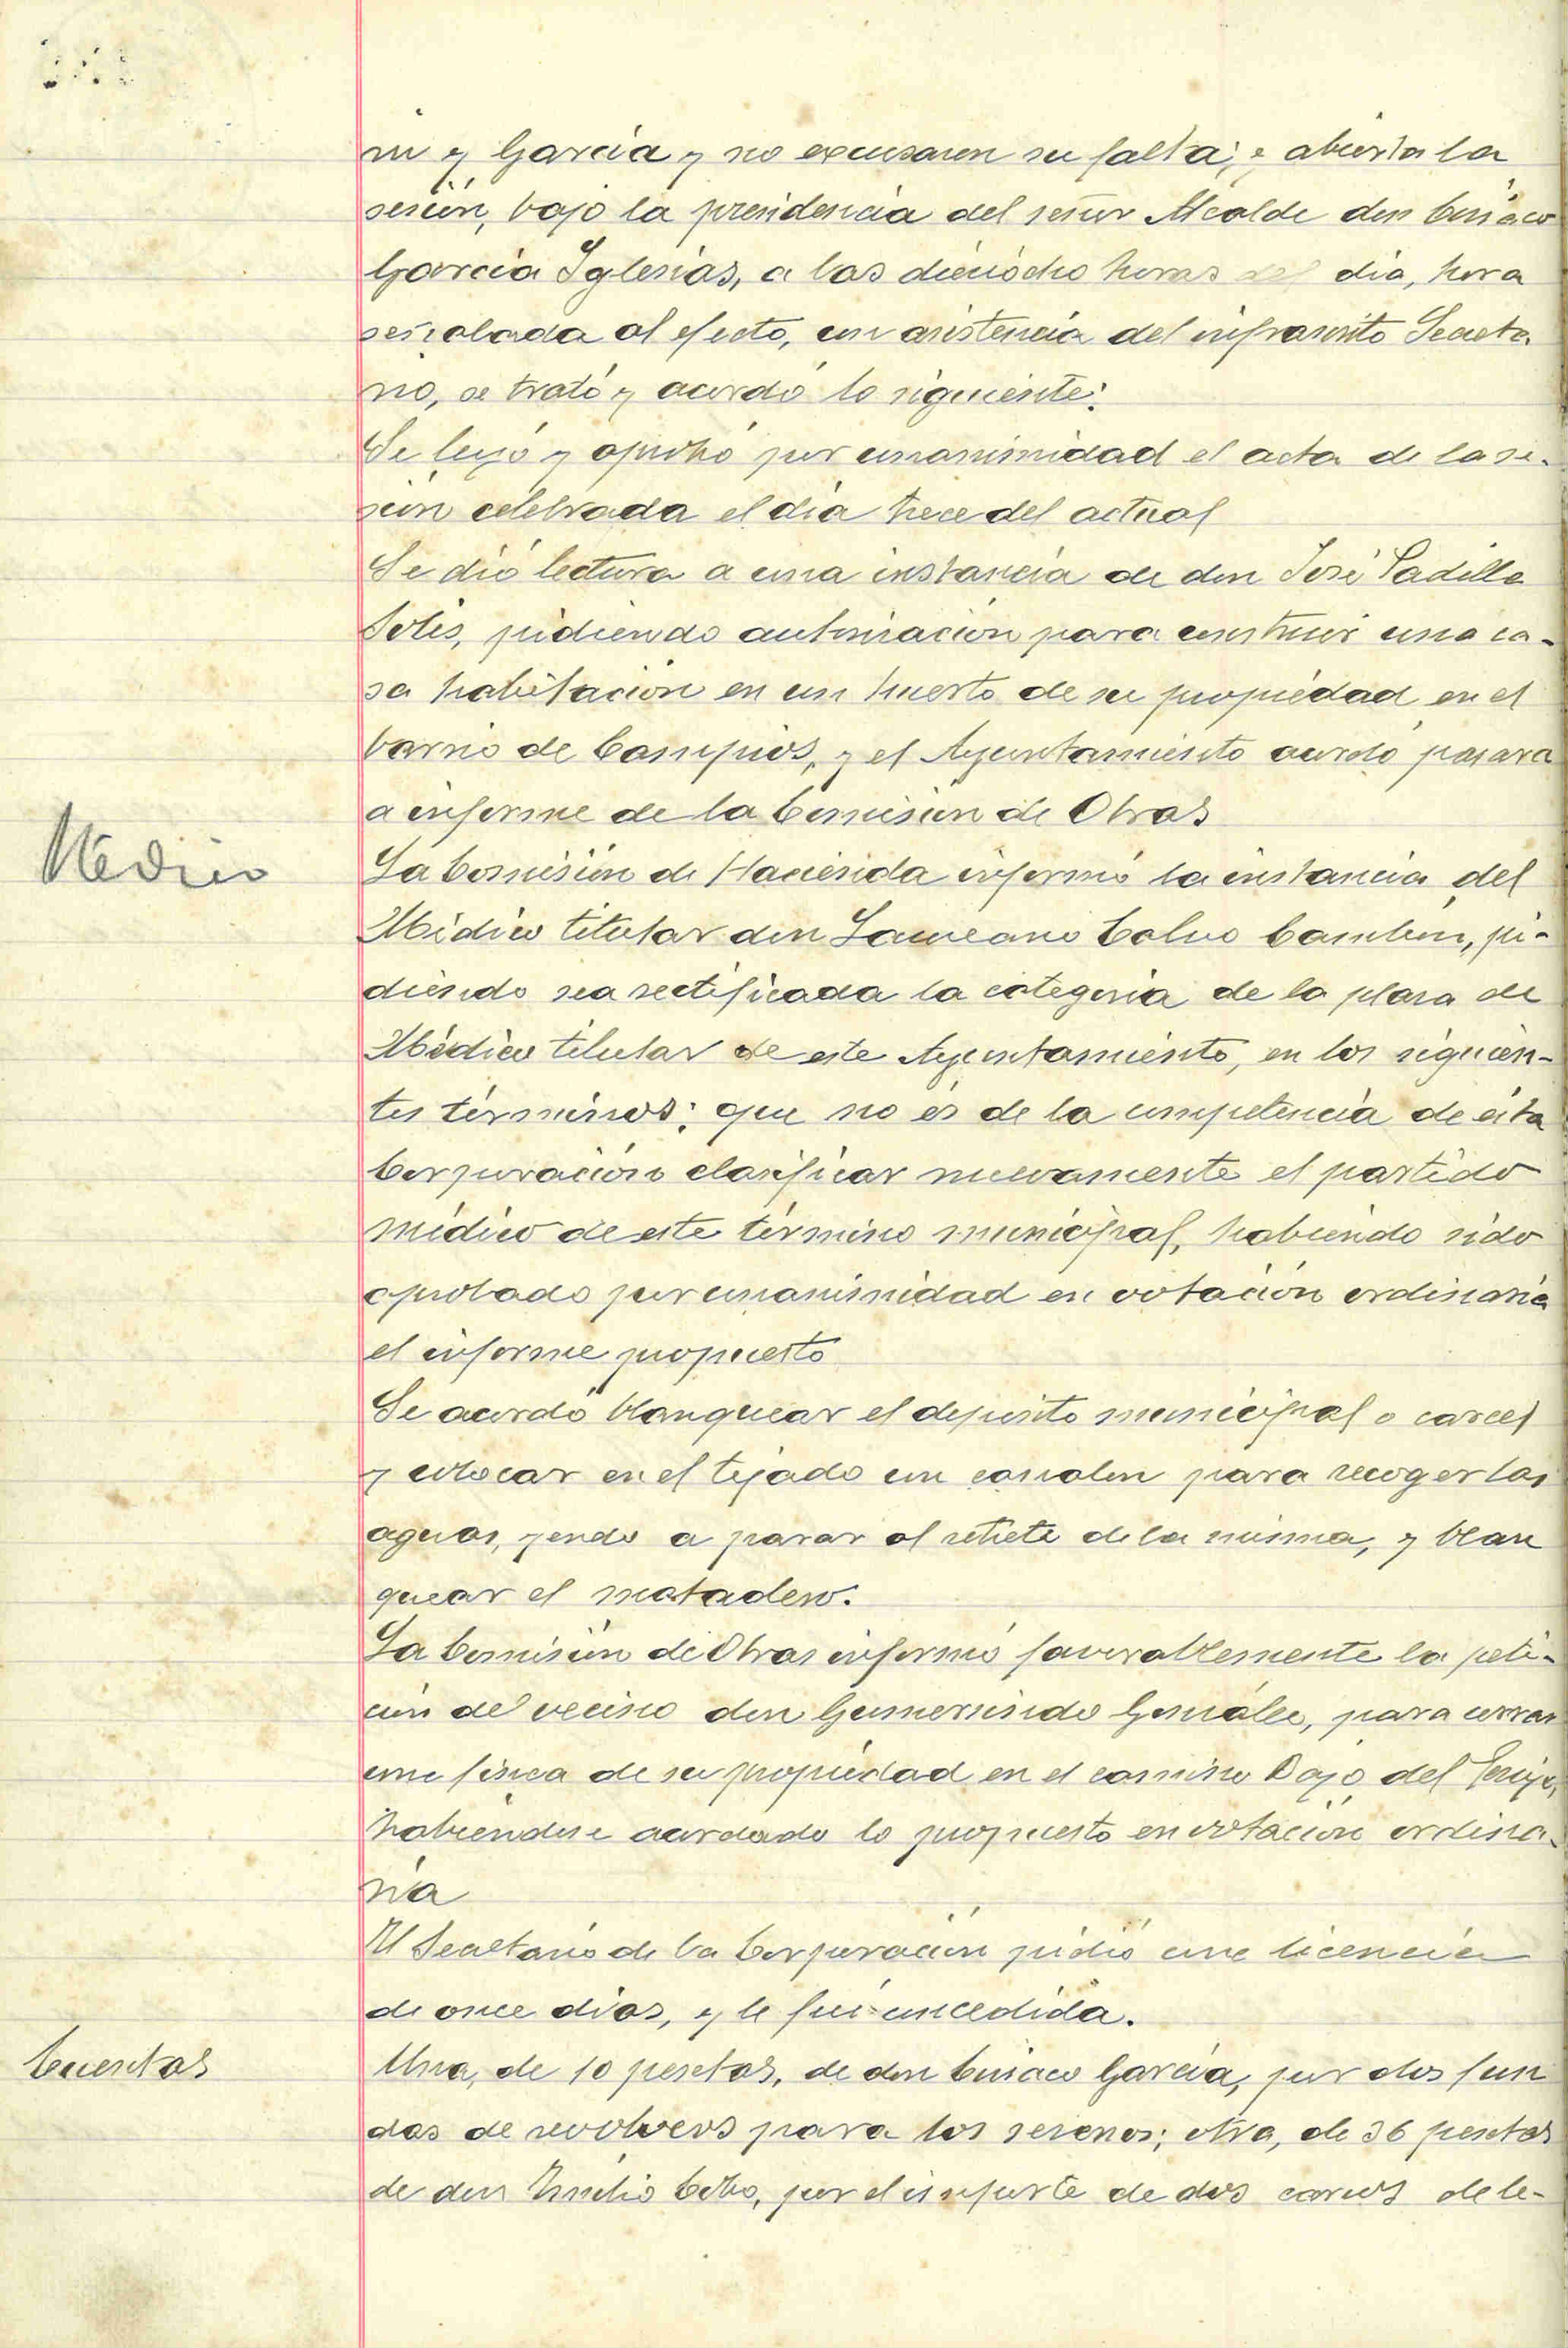 ni y García y no excusaron su falta; y abierta la
sesión, bajo la presidencia del señor Alcalde don Ciriaco
García Iglesias, a las dieciocho horas del día, hora
señalada al efecto, con asistencia del infrascrito Secreta-
rio, se trató y acordó lo siguiente:
Se leyó y aprobó por unanimidad el acta de la se-
sión celebrada el día trece del actual
Se dió lectura a una instancia de don José Padilla
Solis, pidiendo autorización para construir una ca-
sa habitación en un huerto de su propiedad en el
barrio de Campíos, y el Ayuntamiento acordó pasara
a informe de la Comisión de Obras
Médico
La Comisión de Hacienda informó la instancia del
Médico titular don Laureano Calvo, pi-
diendo sea rectificada la categoría de la plaza de
Médico titular de este Ayuntamiento, en los siguien-
tes términos: que no es de la competencia de esta
Corporación clasificar nuevamente el partido
médico de este término municipal, habiendo sido
aprobado por unanimidad en votación ordinaria
el informe propuesto
Se acordó blanquear el depósito municipal o carcel
y colocar en el tejado un canalon para recoger las
aguas, yendo a parar al retrete de la misma, y blan
quear el matadero.
La Comisión de Obras informó favorablemente la peti-
ción del vecino don Gumersindo González, para cerrar
una finca de su propiedad en el camino Bajo del
habiendose acordado lo propuesto en votación ordina-
ria
El Secretario de la Corporación pidió una licencia
de once días, y le fué concedida.
Cuentas
Una, de 10 pesetas, de don Ciriaco García, por dos fun
das de revolvers para los serenos; otra, de 36 pesetas
de don Cobo, por el importe de dos carros de le-